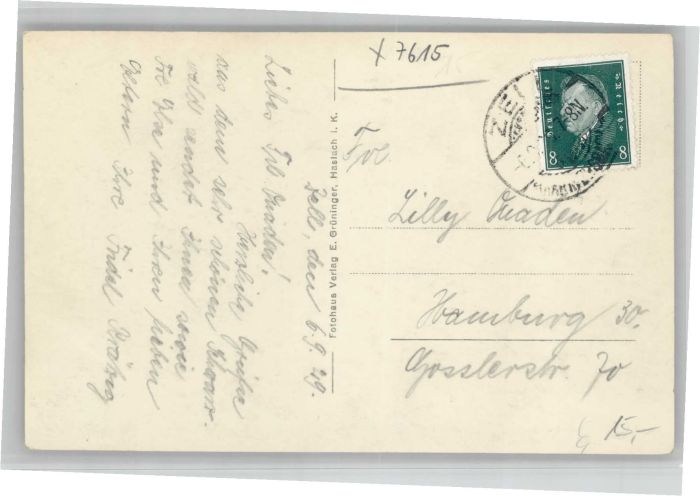 x 7615
Zell, den 6.9.29.
Liebes Frl Quaden!
Herzliche Grüße
aus dem sehr schönen Schwarz-
wald sendet Ihnen sowie
Ihren lieben
Eltern Ihre
Fotohaus Verlag E. Grüninger, Haslach i. K.
Deutsches Reich
8 8
ZELL
Frl.
Lilly Quaden
Hamburg 30.
Gosslerstr. 70
15,-